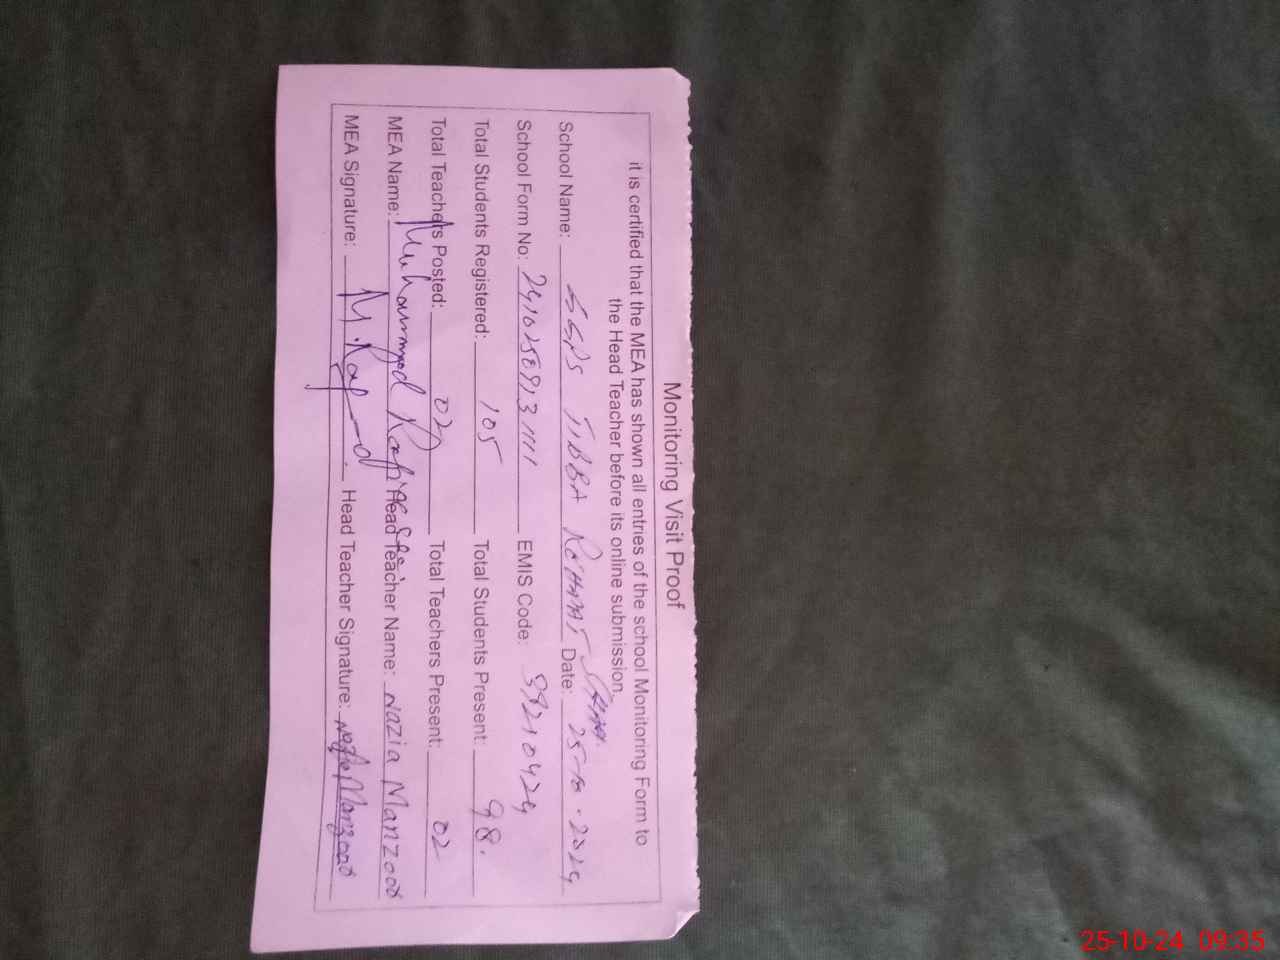 Monitoring Visit Proof
it is certified that the MEA has shown all entries of the school Monitoring Form to
the Head Teacher before its online submission.
School Name: GGPS TIBBA REHMAT Date: 25-10-2024
School Form No: EMIS Code: 39210424
Total Students Registered: 105 Total Students Present: 98.
Total Teachers Posted: 02 Total Teachers Present: 02
MEA Name: Muhammad Head Teacher Name: Nazia Manzoor
MEA Signature: Head Teacher Signature: Nazia Manzoor
25-10-24 09:35